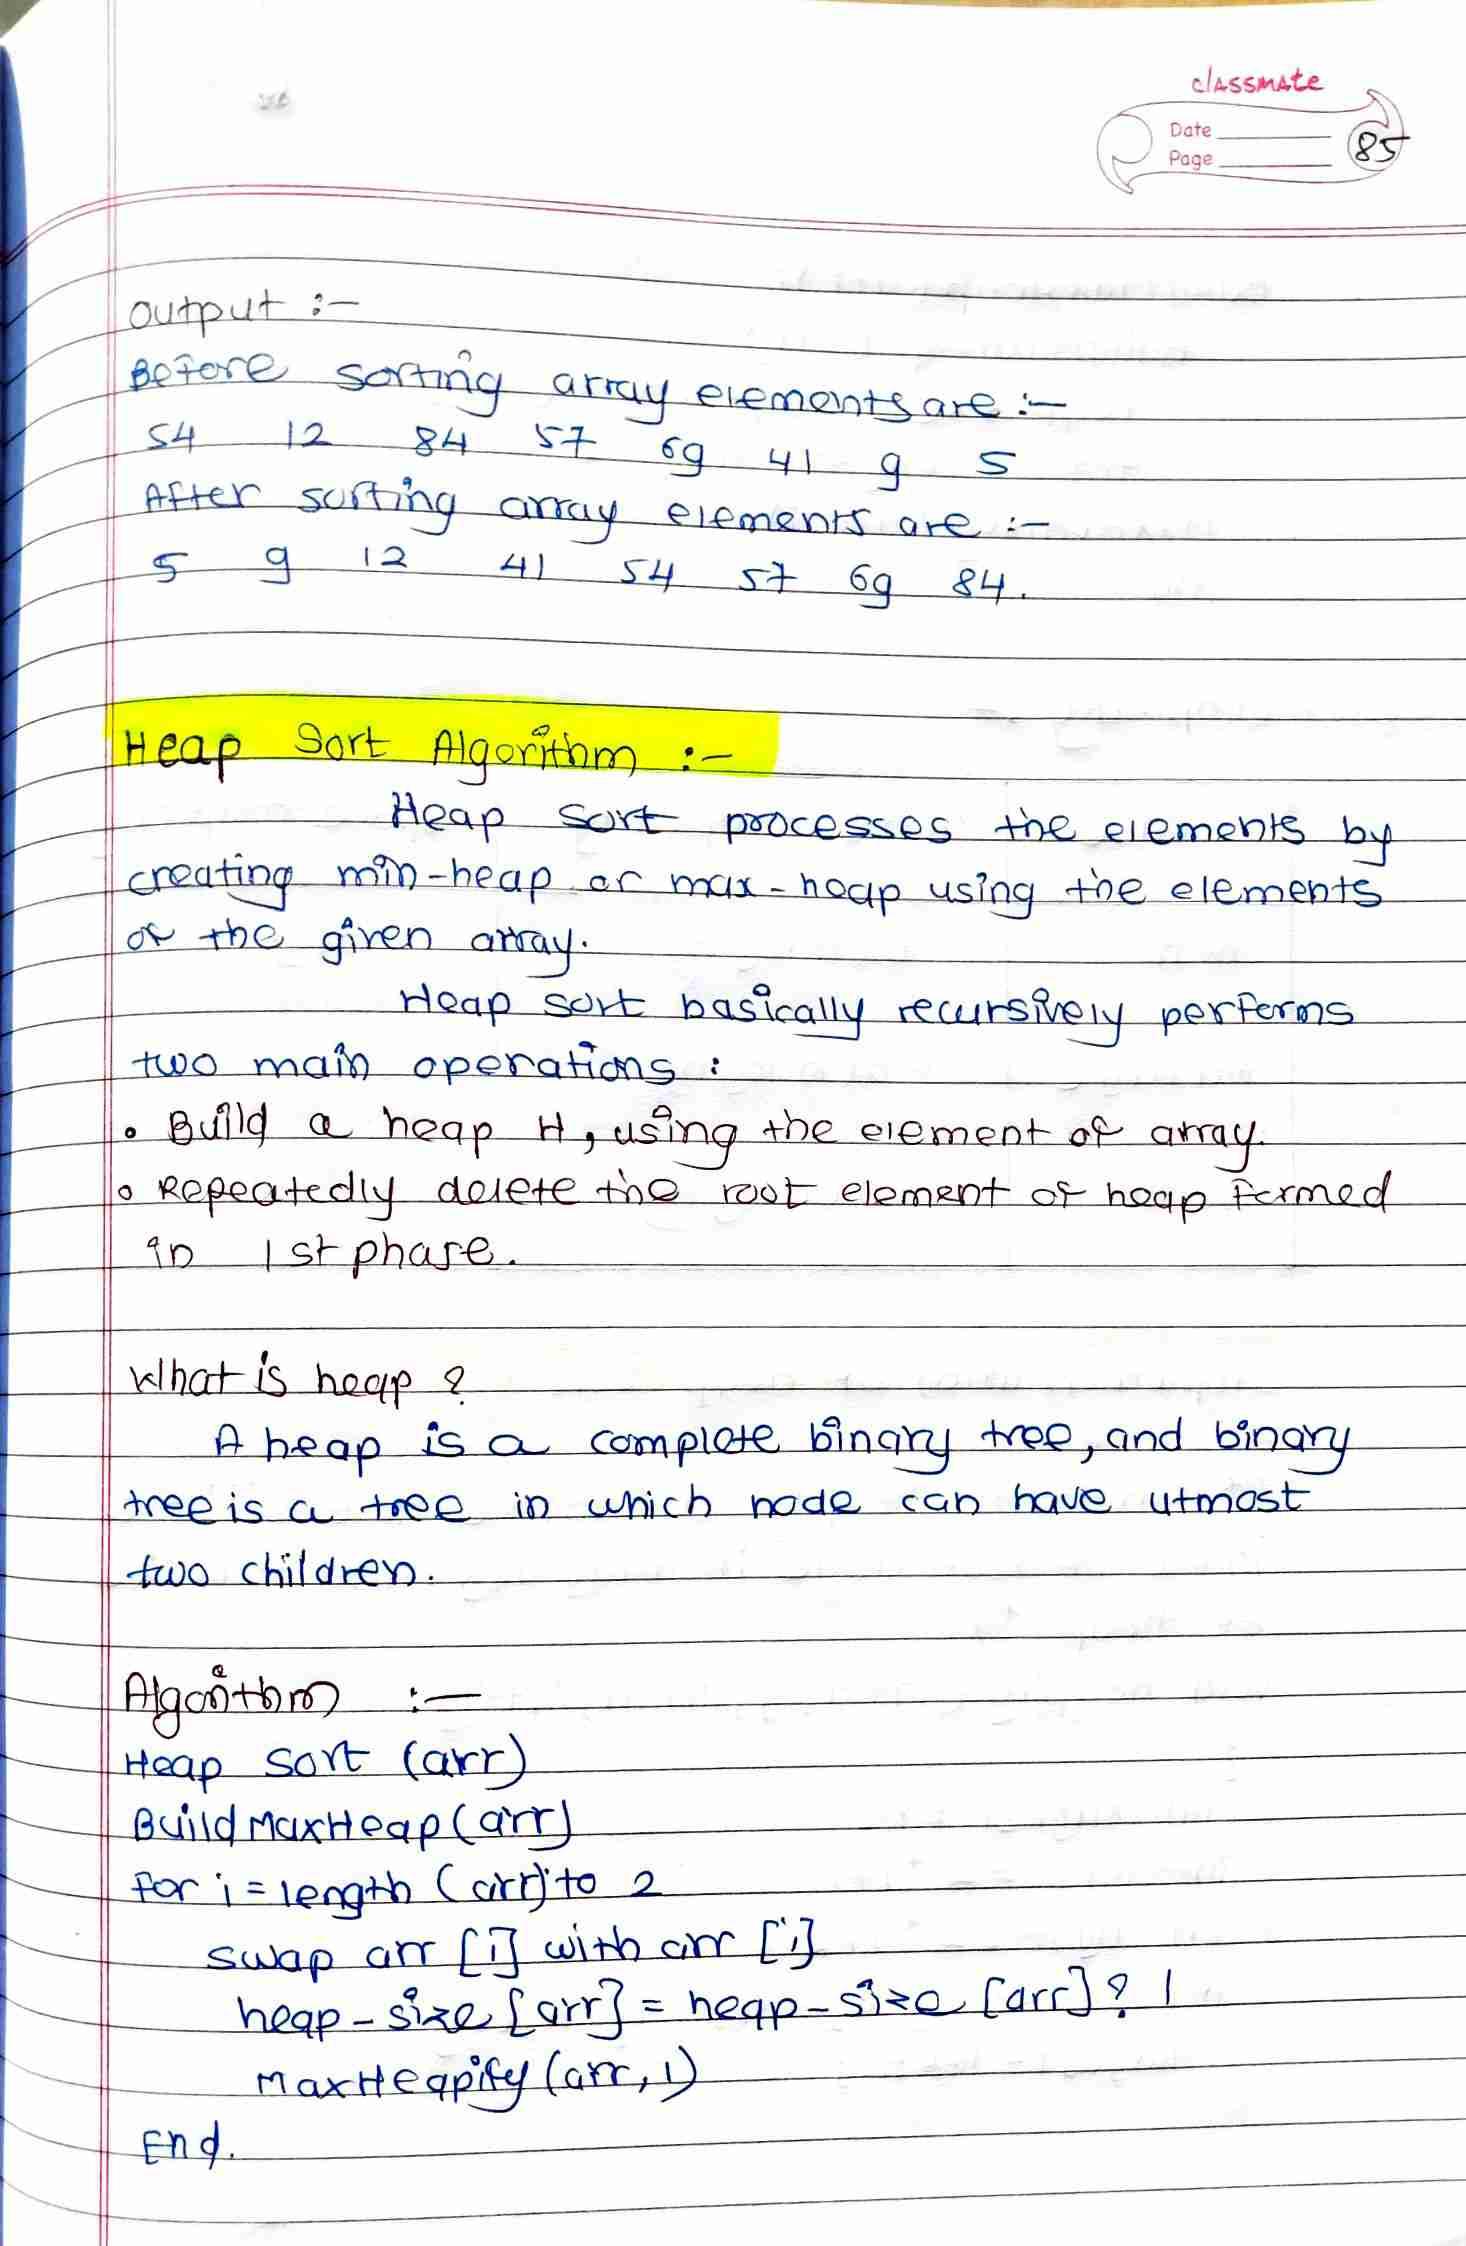 classmate
Date
Page
85
output :-
Before sorting array elements are :-
54 12 84 57 69 41 9 5
After sorting array elements are :-
5 9 12 41 54 57 69 84.
Heap Sort Algorithm :-
Heap sort processes the elements by
creating min-heap or max-heap using the elements
of the given array.
Heap sort basically recursively performs
two main operations :
• Build a heap H, using the element of array.
• Repeatedly delete the root element of heap formed
in 1st phase.
What is heap ?
A heap is a complete binary tree, and binary
tree is a tree in which node can have utmost
two children.
Algorithm :-
Heap Sort (arr)
BuildMaxHeap (arr)
for i = length (arr) to 2
swap arr [i] with arr [i]
heap-size [arr] = heap-size [arr] ? 1
MaxHeapify (arr, 1)
End.